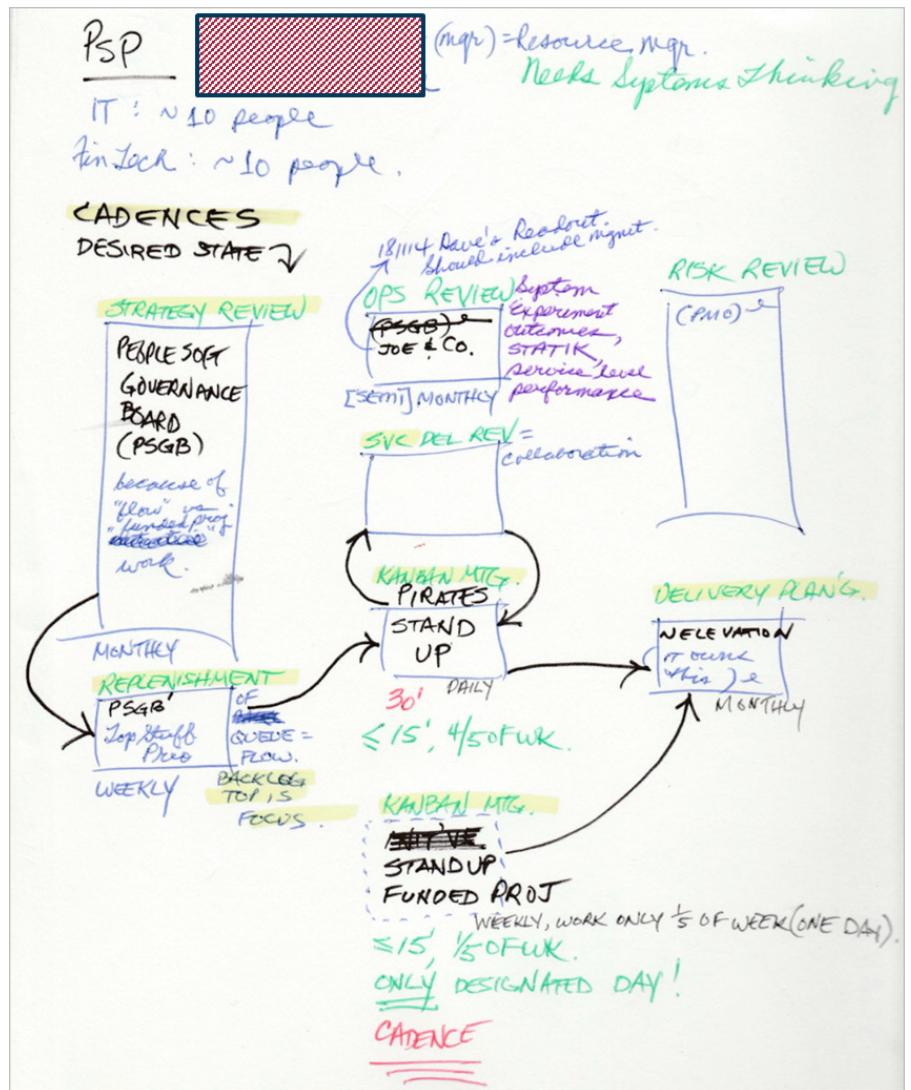 PSP
(mgr) = Resource mgr.
Needs Systems Thinking
IT: ~10 people
FinTech: ~10 people.
CADENCES
DESIRED STATE
181114 Dave's Readout.
Should include mgmt.
STRATEGY REVIEW
PEOPLESOFT
GOVERNANCE
BOARD
(PSGB)
because of
"flow" vs
"funded proj"
work.
MONTHLY
OPS REVIEW
(PSGB)
JOE & CO.
[SEMI] MONTHLY
System
Experiment
outcomes,
STATIK,
service level
performance
RISK REVIEW
(PMO)
SVC DEL REV =
collaboration
KANBAN MTG.
PIRATES
STAND
UP
DAILY
30'
≤15', 4/5 OF WK.
DELIVERY PLAN'G.
N ELEVATION
IT owns
this
MONTHLY
REPLENISHMENT
PSGB'
Top Stuff
Prio
WEEKLY
OF
QUEUE =
FLOW.
BACKLOG
TOP IS
FOCUS.
KANBAN MTG.
STANDUP
FUNDED PROJ
WEEKLY, WORK ONLY 1/5 OF WEEK (ONE DAY).
≤15', 1/5 OF WK.
ONLY DESIGNATED DAY!
CADENCE